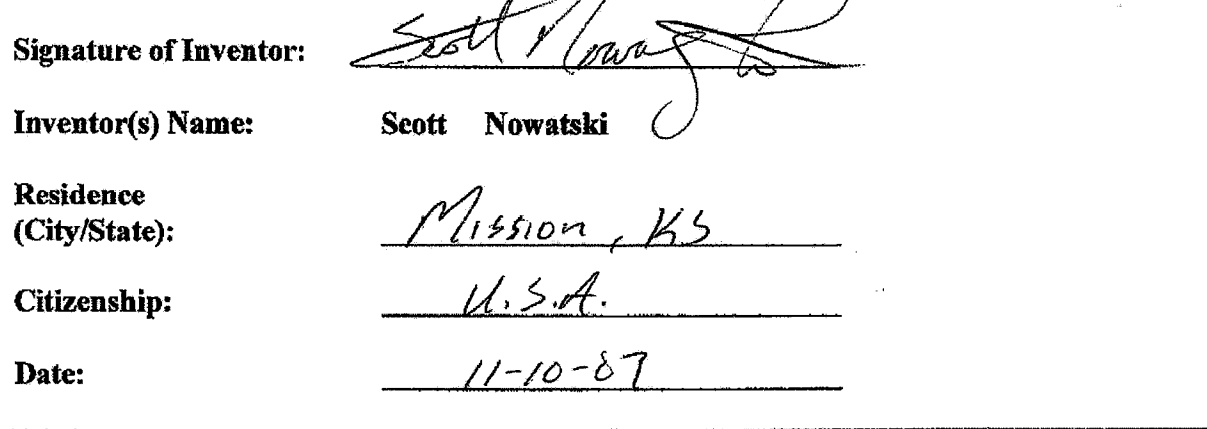 Signature of Inventor: Scott Nowatski
Inventor(s) Name: Scott Nowatski
Residence
(City/State): Mission, KS
Citizenship: U.S.A.
Date: 11-10-07